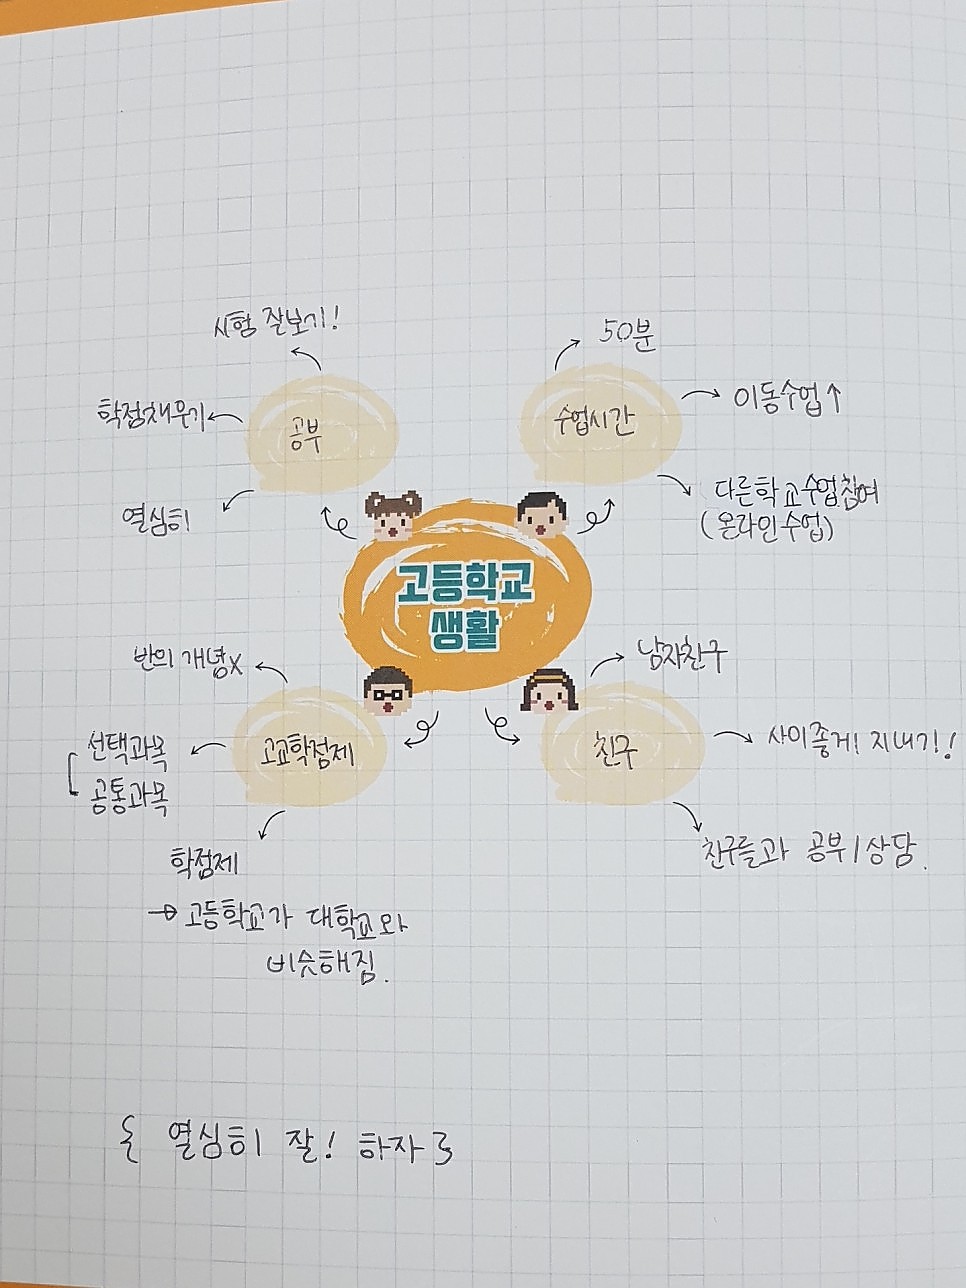 시험 잘보기!
학점채우기
공부
열심히
50분
수업시간
이동수업↑
다른학교수업참여
(온라인수업)
고등학교
생활
반의 개념x
선택과목
공통과목
고교학점제
학점제
→ 고등학교가 대학교와
비슷해짐.
남자친구
친구
사이좋게! 지내기!!
친구들과 공부/상담.
{ 열심히 잘! 하자 }